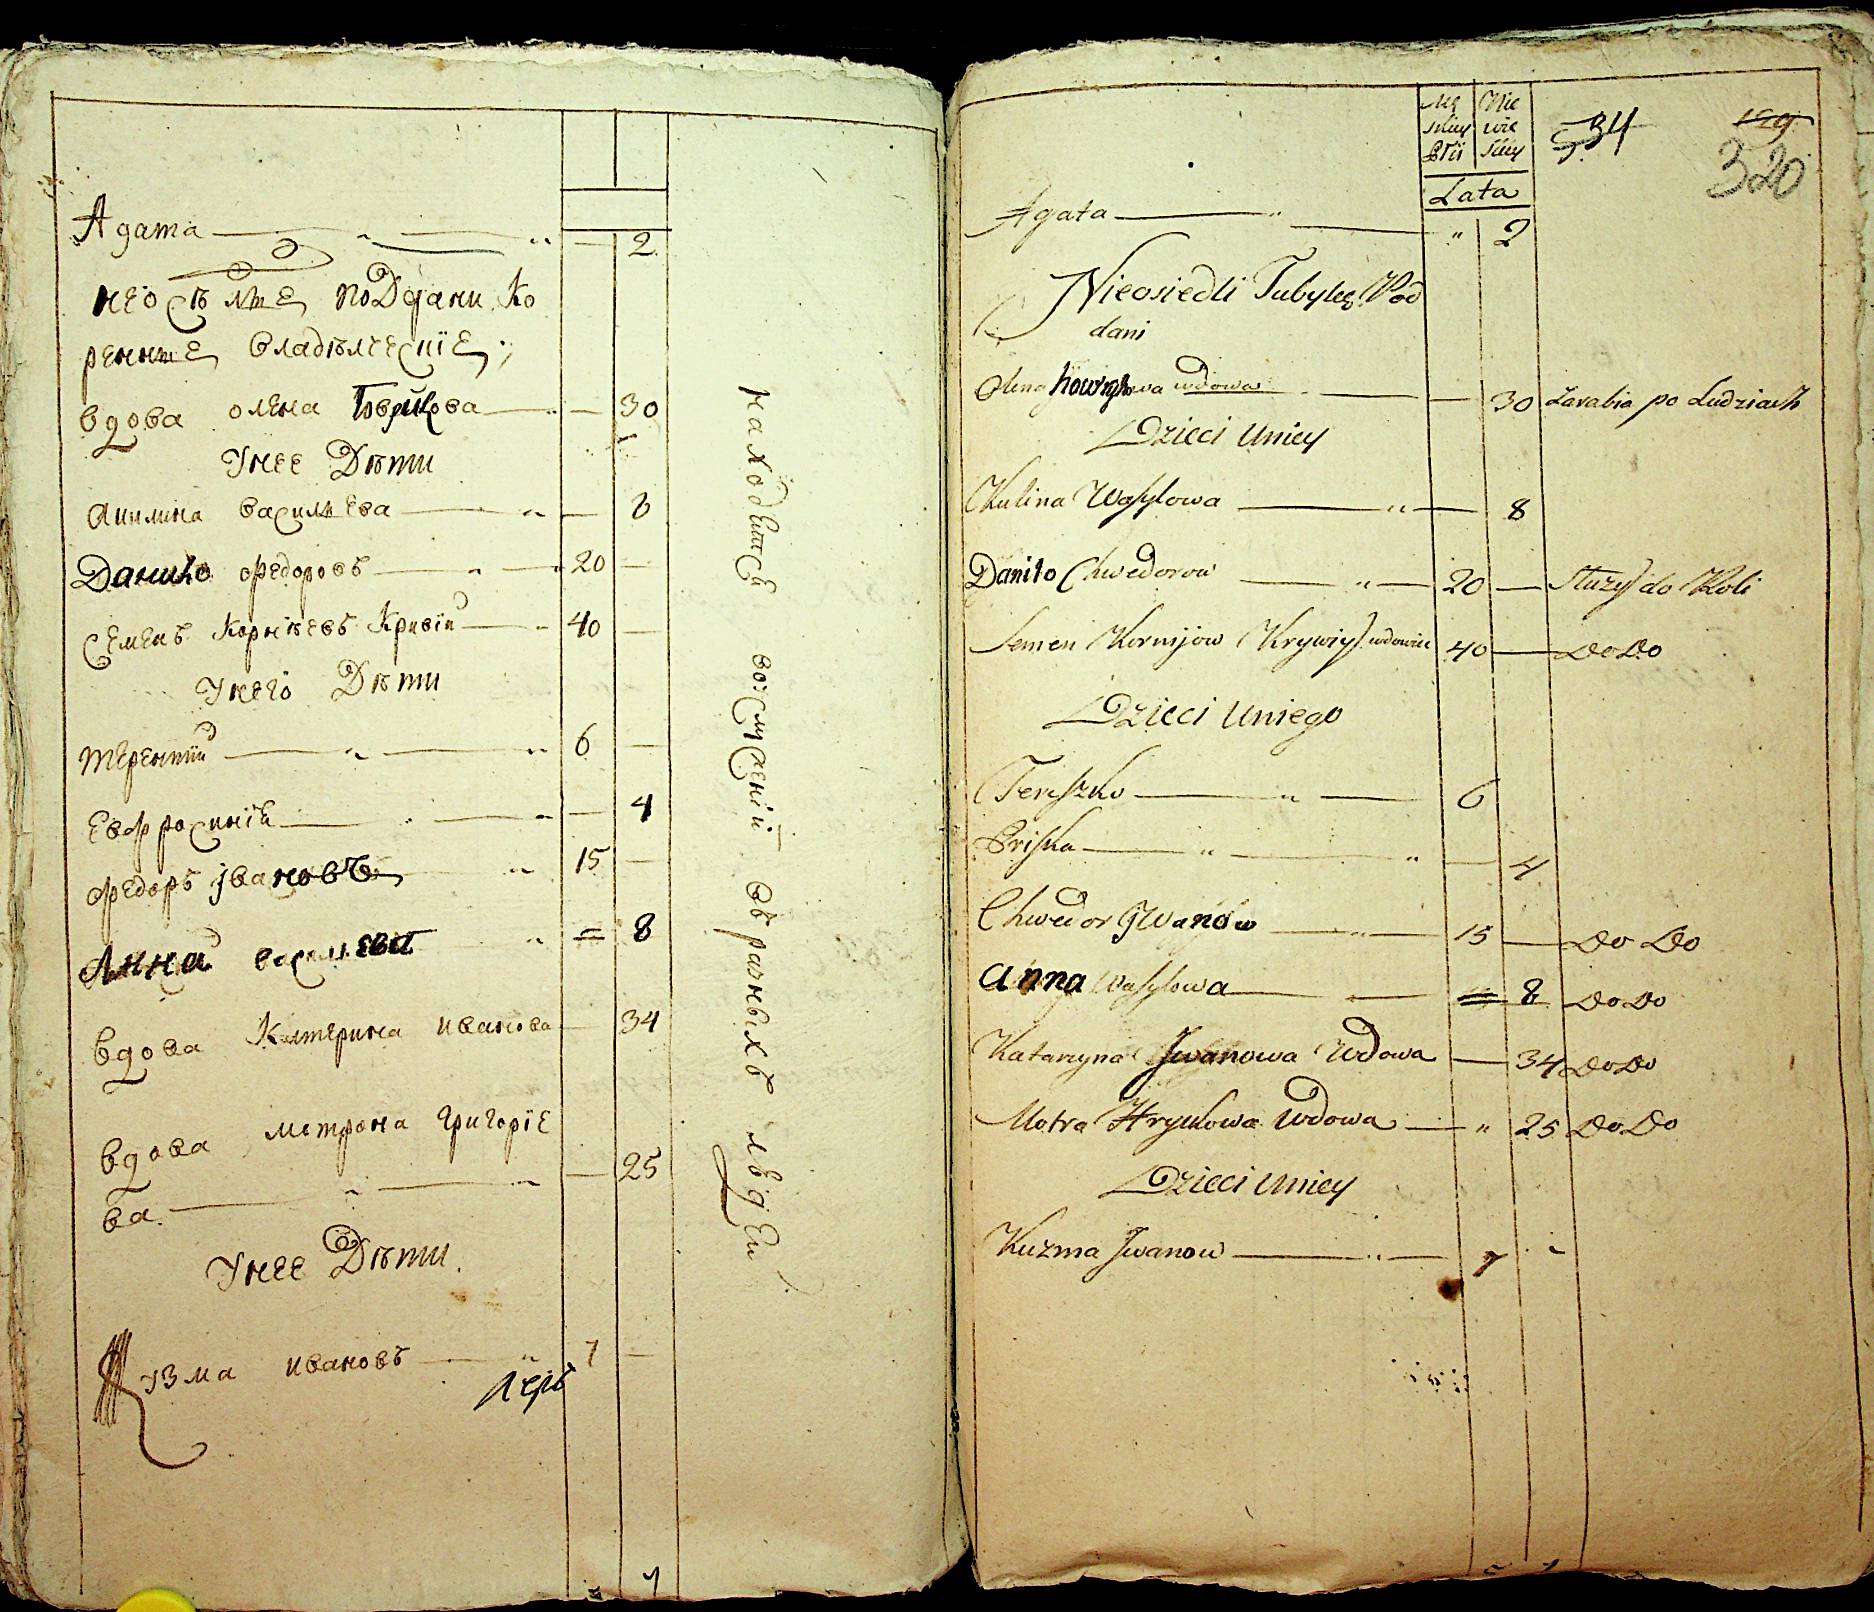 Агата — 2
неосѣлые подданы ко
ренные владѣлческіе
вдова олена — 30
Унее Дѣти
Акилина васильева — 8
Данило Федоровъ — 20 —
Семенъ Корнѣевъ Кривій — 40 —
Унего Дѣти
терентій — 6 —
Евфросинія — 4
Федоръ Івановъ 15 —
Анна васильева = 8
вдова Катерина иванова — 34
вдова мотрона григоріе
ва — 25
Унее Дѣти
Кузма ивановъ — 7 —
находятся воуслуженіи въ разныхъ людеи
Mę skiey Płci
Nie wie skiey
534
129
320
Lata
Agata — " 2
Nieosiedli Tubylcy Pod
dani
Olena wdowa — 30 Zarabia po Ludziach
Dzieci Uniey
Kulina Wasylowa — 8
Daniło Chwedorow — 20 — Służy do Roli
Semen Kornijow Krywiy wdowiec 40 — Do Do
Dzieci Uniego
Tereszko — 6
Pryska — 4
Chwedor Jwanow — 15 — Do Do
Anna Wasylowa — = 8 Do Do
Katarzyna Jwanowa Wdowa — 34 Do Do
Motra Hrycukowa Wdowa — " 25 Do Do
Dzieci Uniey
Kuzma Jwanow — 7